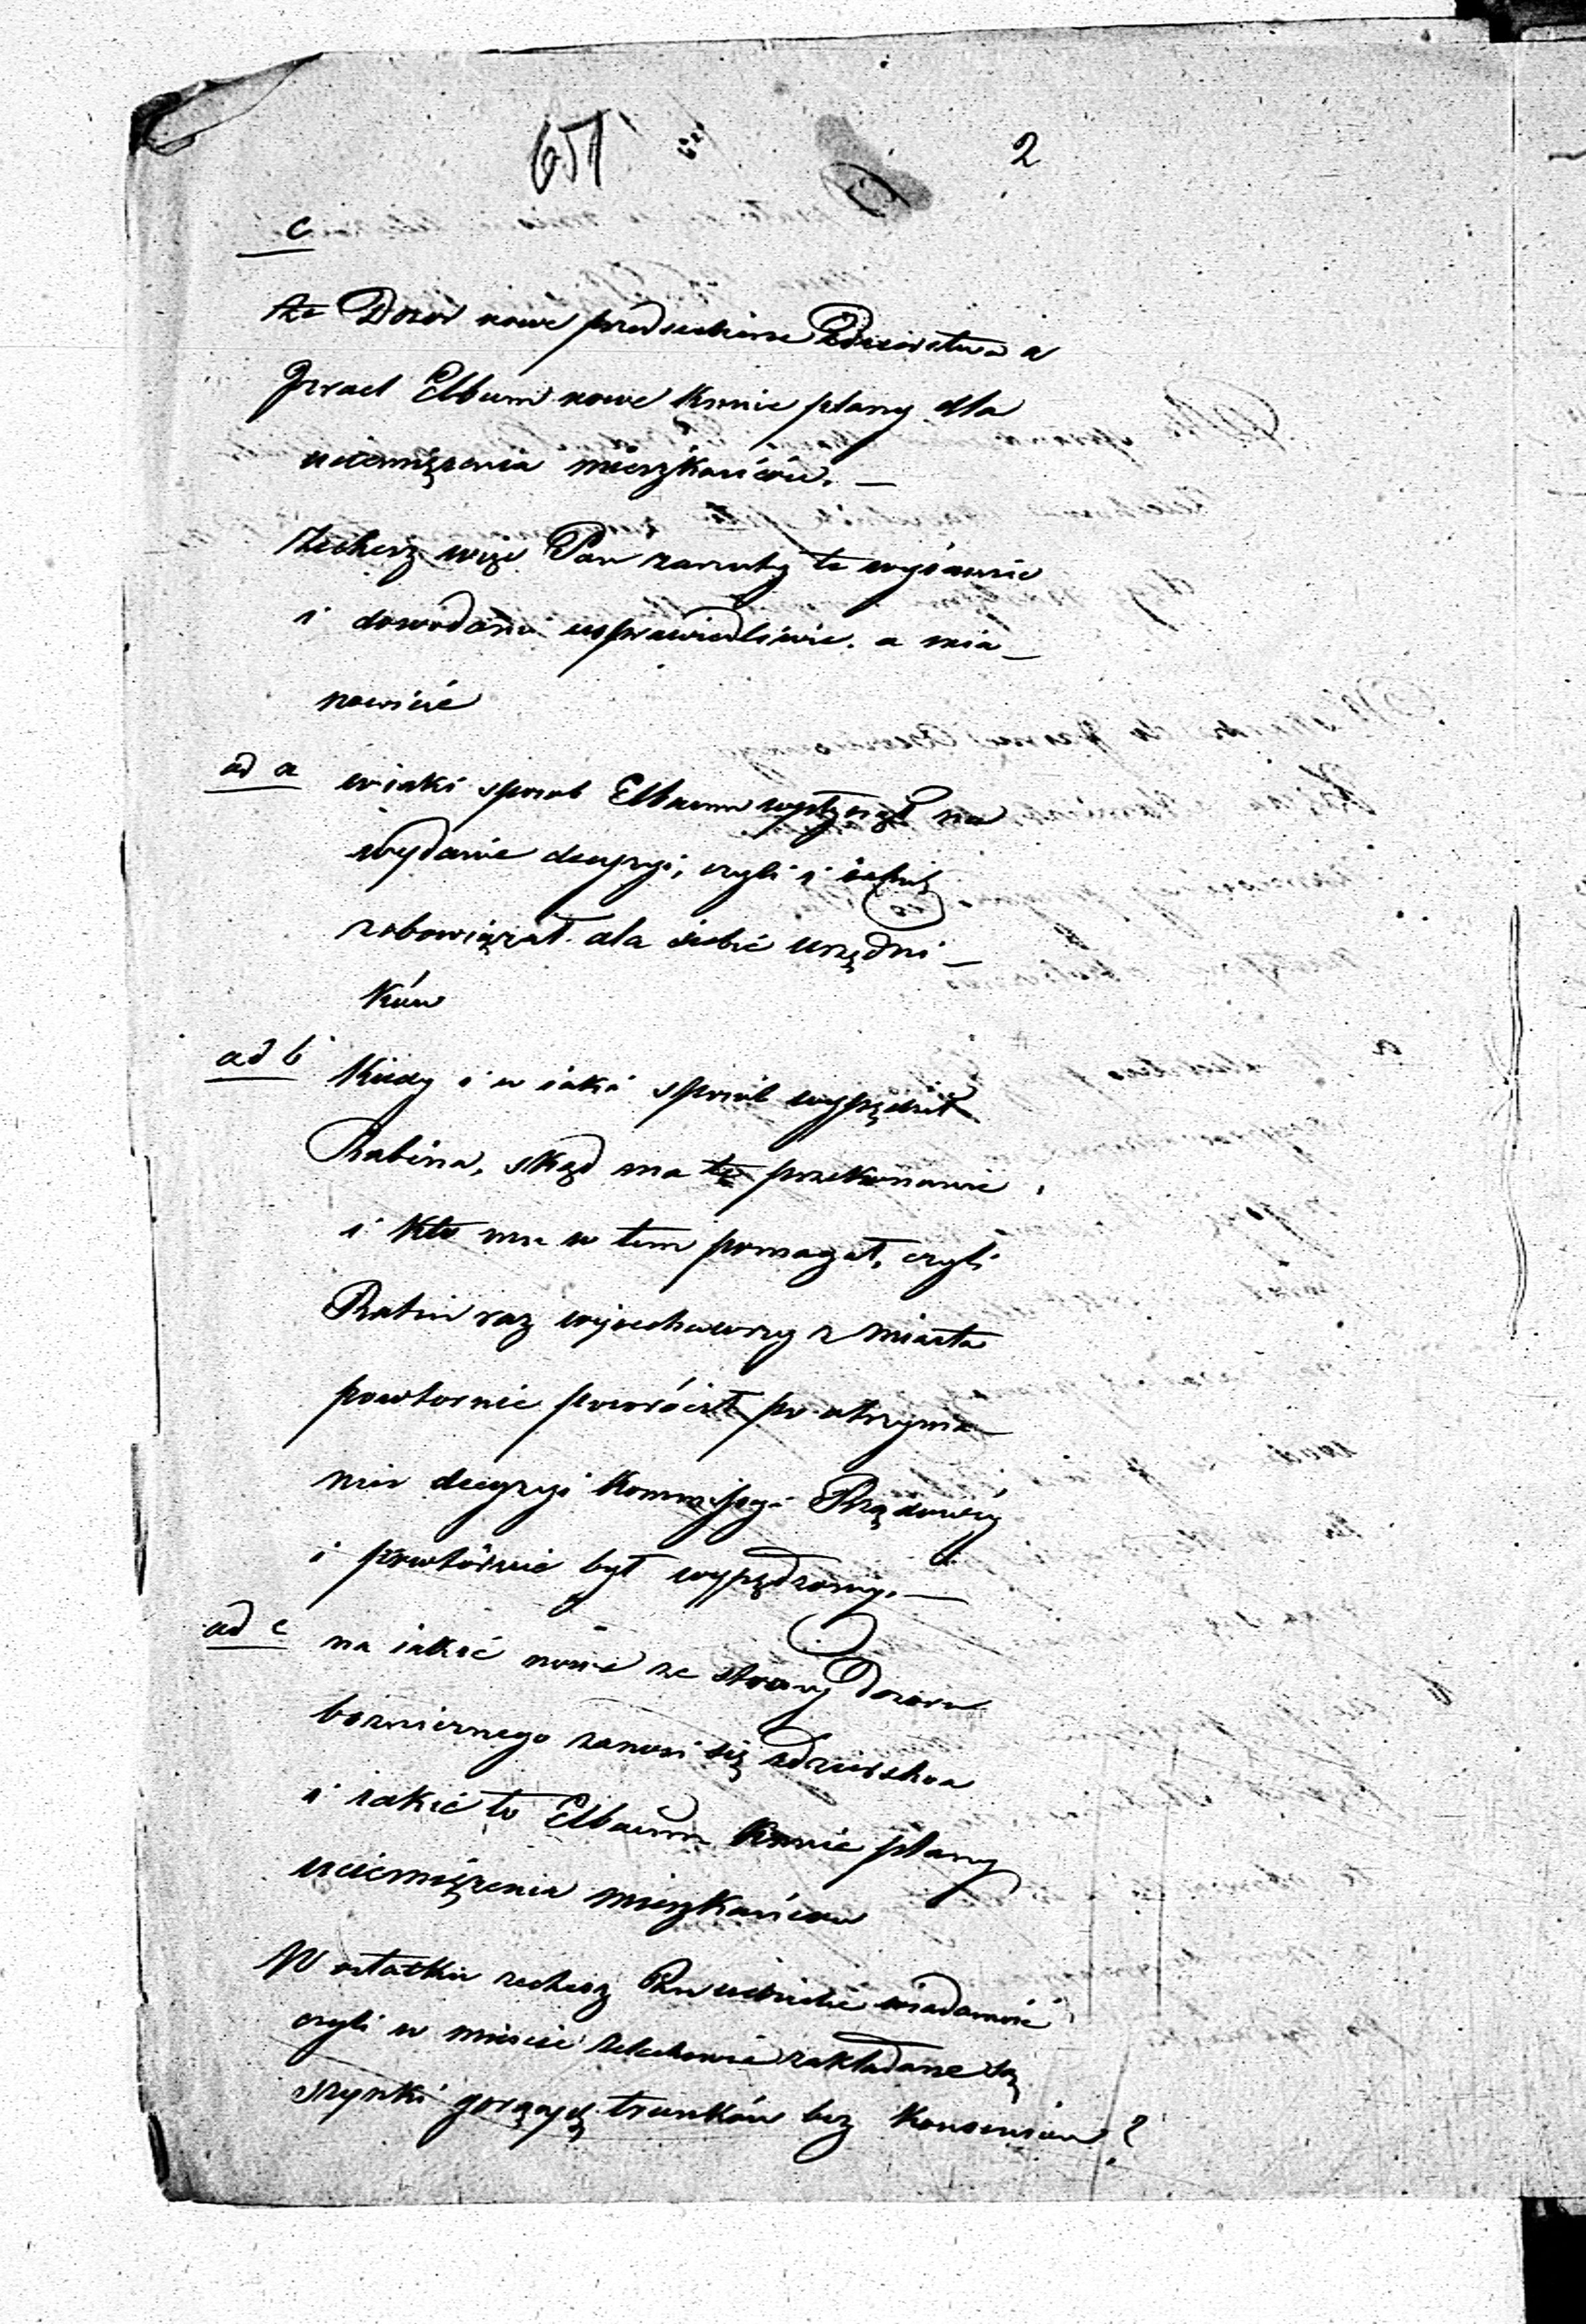 651 2
c
że Dozór nowe przedsiebierze Zdzierstwa a
Izrael Elbaum nowe knuie plany dla
uciemiężenia mieszkańców. —
Zechcesz więc Pan zarzuty te wyiaśnić
i dowodami usprawiedliwić. a mia_
nowicie
ad a w iaki sposob Elbaum wpłynął na
wydanie decyzyi, czyli i iakich
zobowiązał dla siebie urzędni_
ków
ad b Kiedy i w iaki sposób wypędził
Rabina, skąd ma te przekonanie
i kto mu w tem pomagał, czyli
Rabin raz wyiechawszy z miasta
powtornie powrócił po otrzyma_
niu decyzyi Kommissyi Rządowéy
i powtórnie był wypędzony. —
ad c na iakieć nowe ze strony Dozoru
boźniczego zanosi się zdzierstwa
i iakie to Elbaum knuie plany
uciemiężenia mieszkańców
W ostatku zechcesz Pan udzielić wiadomość
czyli w mieście Zelechowie zakładane są
szynki gorących trunków bez konsensów?